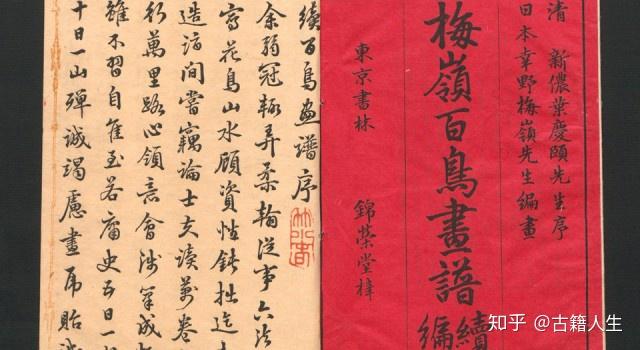 清 新儂葉慶頤先生序
日本幸野梅嶺先生編畫
梅嶺百鳥畫譜 續編
東京書林 錦榮堂梓
續百鳥画譜序
余弱冠輒弄柔翰從事六法
寫花鳥山水顧資性鈍拙迄
造詣間嘗竊論士夫讀萬卷
行萬里路心領意會涉筆成
雖不習自佳至若腐史五日一
十日一山殫誠竭慮畫虎貽
知乎 @古籍人生